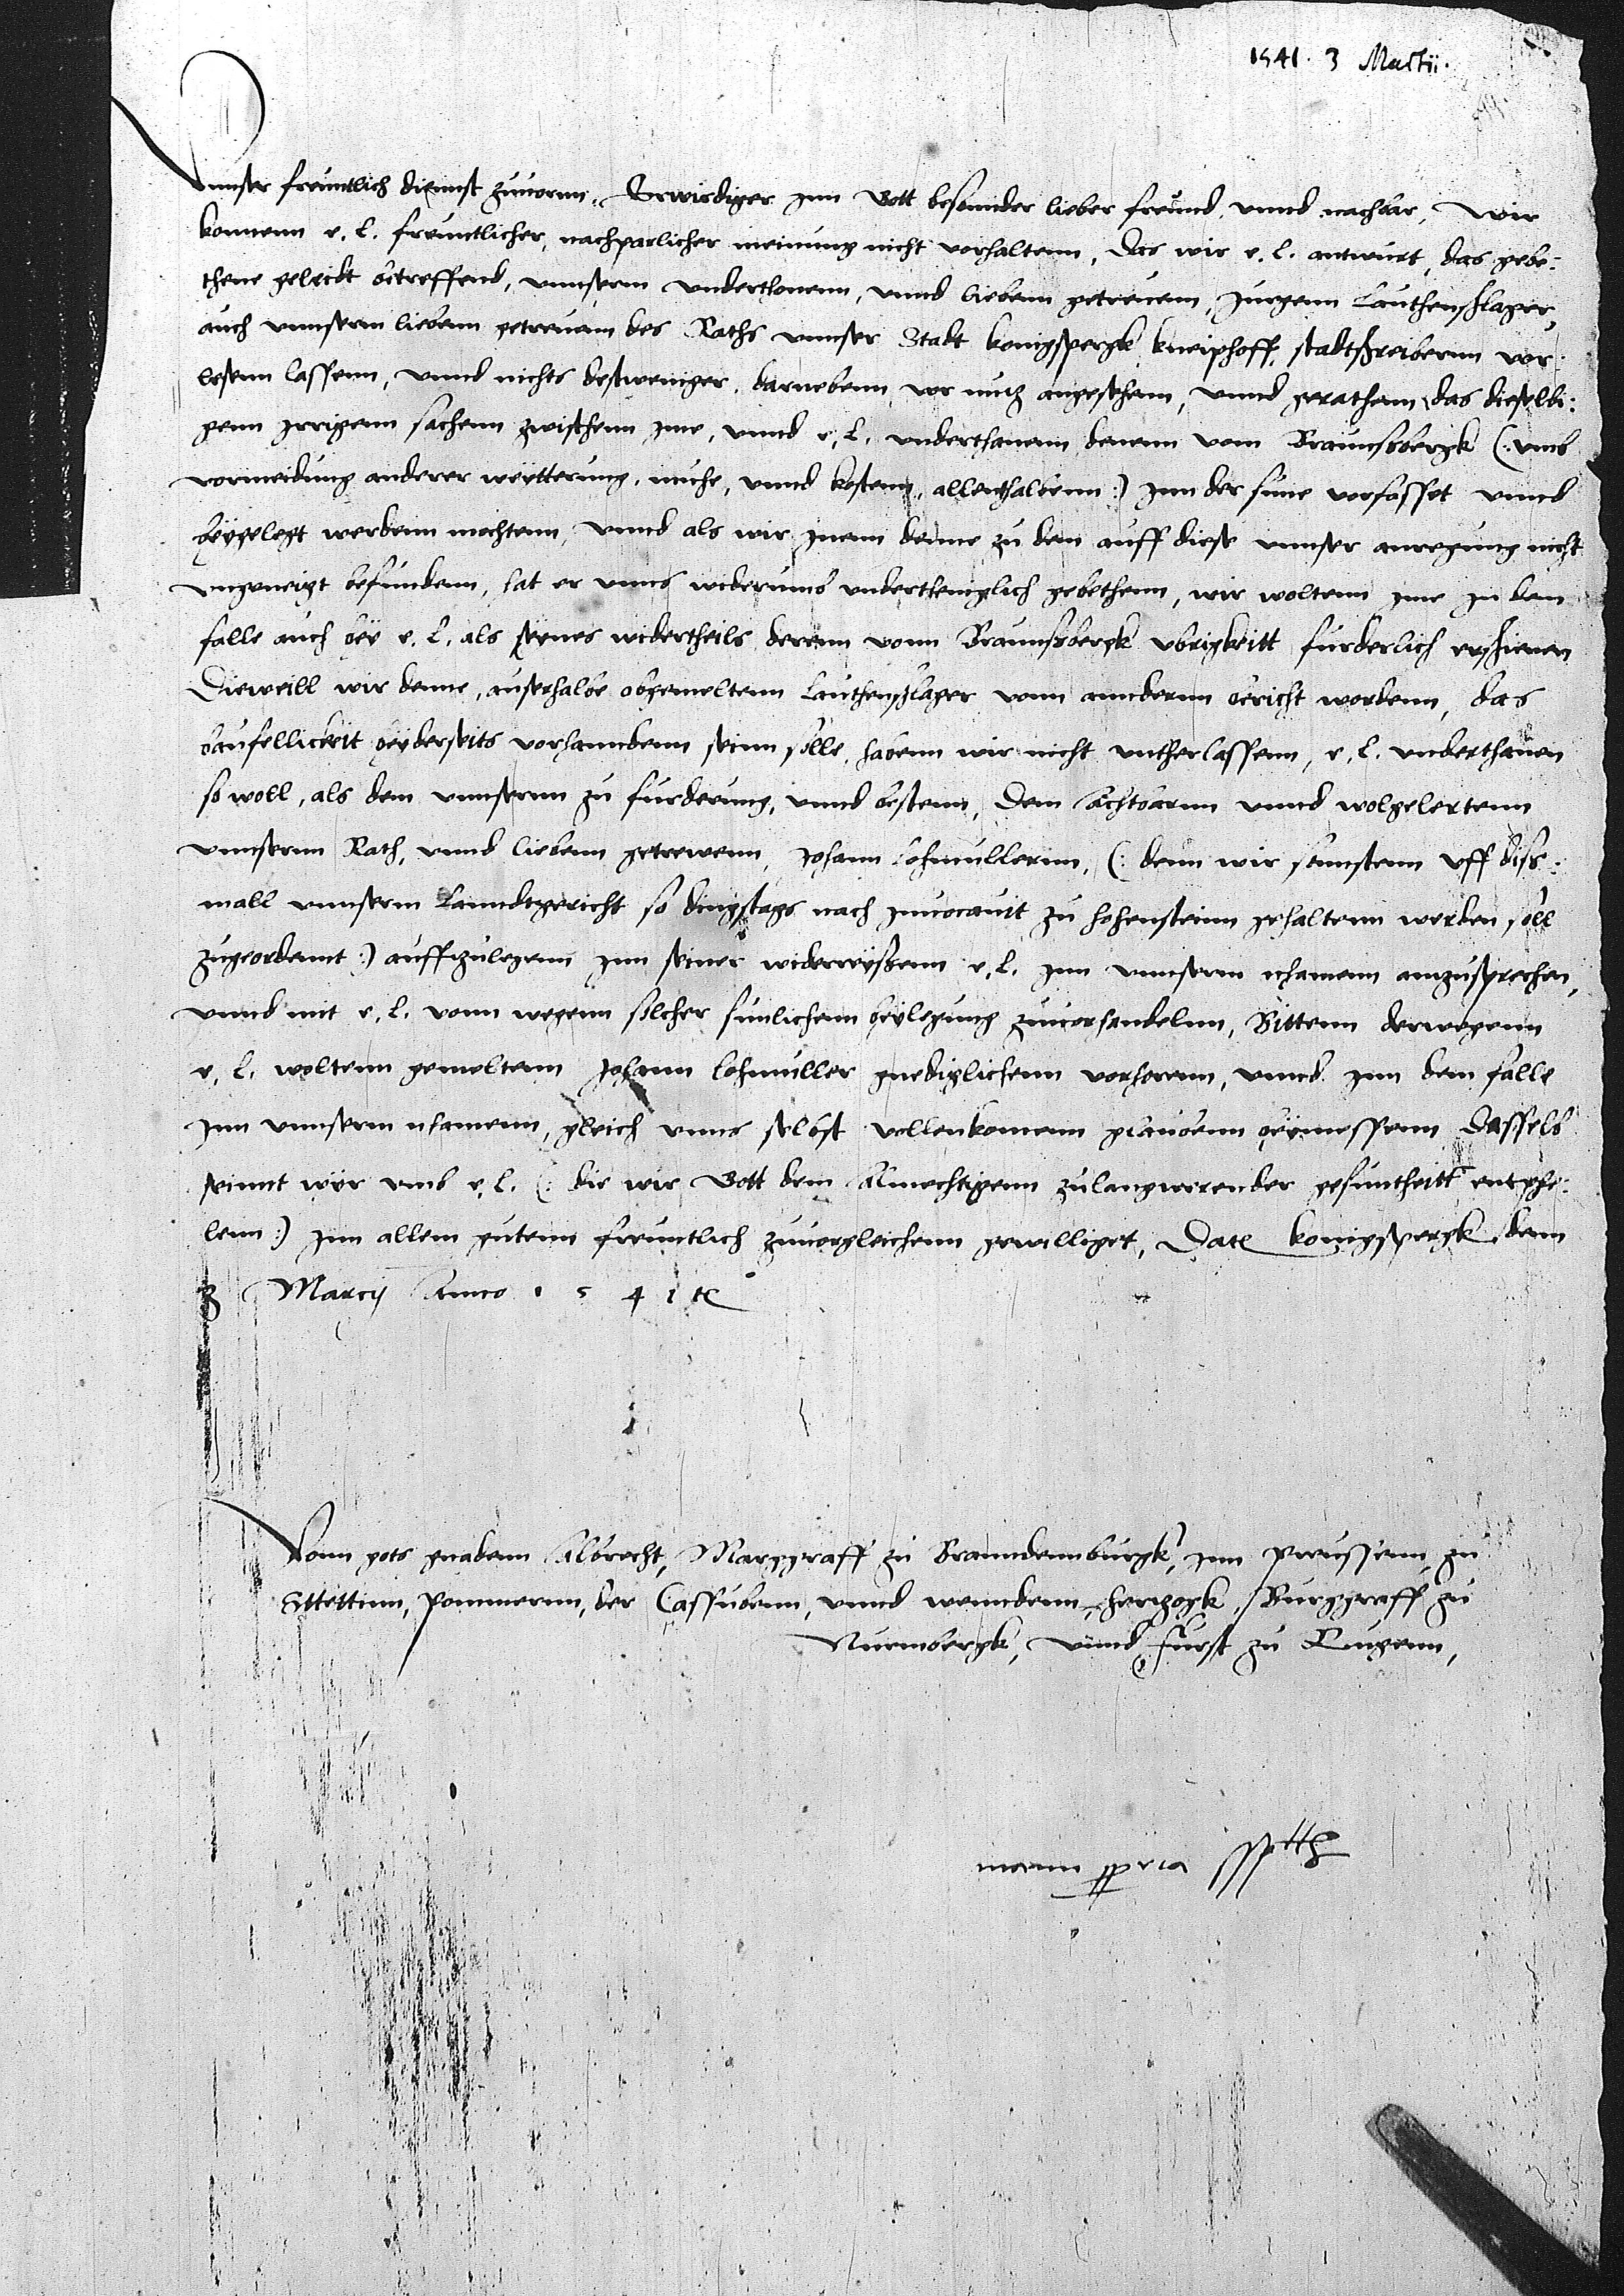 1541. 3 Martii.
Vnnser freuntlich dinnst zuuornn. Erwirdiger jnn Gott besonnder lieber freund vnnd nachbar, Wir
konnenn e. l. freuntlicher, nachparlicher meinung nicht vorhaltenn, Das wir e. l. antwurt, das gebe:
thene geleidt betreffend, vnnserm vnderthonenn, vnnd liebenn getreuenn, Jurgenn Lauthenschlager,
auch vnnserm liebenn getreuen des Raths vnnser Stadt konigspergk kneiphoff, stadtschreibernn vor
lesenn lassenn, vnnd nichts destweniger, darnebenn vor nutz angesehenn, vnnd gerathenn, das dieselbi:
genn jrrigenn sachenn zwischenn jme, vnnd e. l. vnderthanenn denenn vom Braunssbergk (: vmb
vormeidung anderer weytterung, muhe, vnnd kostenn, allenthalbenn :) jnn der sune vorfasset vnnd
beygelegt werdenn mochtenn, vnnd als wir jnenn denne zu dem auff diese vnnser anregung nicht
vngeneigt befundenn, hat er vnns widerumb vndertheniglich gebethenn, wir woltenn jme jn dem
falle auch bey e. l. als seynes widertheils derenn vonn Braunssbergk vbrigkeitt furderlich erschienen
Dieweill wir denne, ausserhalbe obgemeltenn Lauthenschlager vonn annderun bericht wordenn, das
baufellickeit beyderseits vorhanndenn seinn solle, habenn wir nicht vntherlassenn, e. l. vnderthanen
so woll, als dem vnnsernn zu furderung, vnnd bestenn, Dem Achtbarnn vnnd wolgelertenn
vnnsernn Rath, vnnd liebenn getrewenn, Johann Lohmullernn, (: denn wir sunstenn vff diss:
mall vnnserm Lanndtgericht so dingstags nach Jnuocauit zu hohensteinn gehaltenn werden soll
zugeordennt :) auffzulegenn jnn seiner widerreyssenn e. l. jnn vnnserm nhamenn anzusprechen,
vnnd mit e. l. vonn wegenn solcher sunlichenn beylegung zuuorhandelnn, Bittenn derwegenn
e. l. woltenn gemeltenn Johann Lohmuller gnediglichenn vorhorenn, vnnd jnn dem falle
jnn vnnserm nhamenn, gleich vnns selbst vollenkomenn glaubenn beymessenn Dasselb
seinnt wyr vmb e. l. (: die wir Gott dem Almechtigenn zulangwirender gesuntheitt entphe:
lenn :) jnn allem gutenn freuntlich zuuorgleichenn gewilliget, Date konigspergk denn
3 Marcij Anno 1541te
Vonn gots gnadenn Albrecht, Marggraff zu Branndennburgk, jnn Preussenn, zu
Stettinn, Pommernn, der Cassubenn, vnnd wenndenn, hertzogk, Burggraff zu
Nurmbergk, vnnd furst zu Rugenn,
manu ppria sspttß